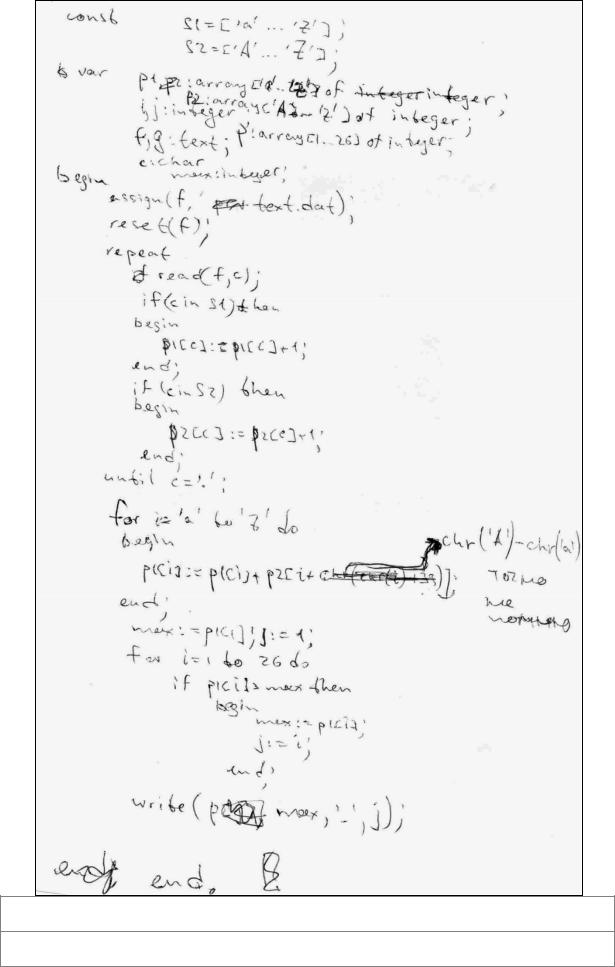 const
S1=['a'...'z'];
S2=['A'...'Z'];
var p1, : array['a'..'z'] of integer;
p2:array['A'..'Z'] of integer;
i,j:integer
f,g:text; p:array[1..26] of integer;
c:char
max:integer;
begin
assign(f, ' text.dat);
reset(f);
repeat
read(f,c);
if(c in S1)then
begin
p1[c]:=p1[c]+1;
end;
if(c in S2) then
begin
p2[c]:=p2[c]+1;
end;
until c='.';
for i='a' to 'z' do
begin
chr('A')-chr('a')
p1[i]:=p1[i]+p2[i+ )];
точно
не
end;
max:=p1[1];j:=1;
for i=1 to 26 do
if p1[i]>max then
begin
max:=p1[i];
j:=i;
end;
write( max,'.',j);
end; end.